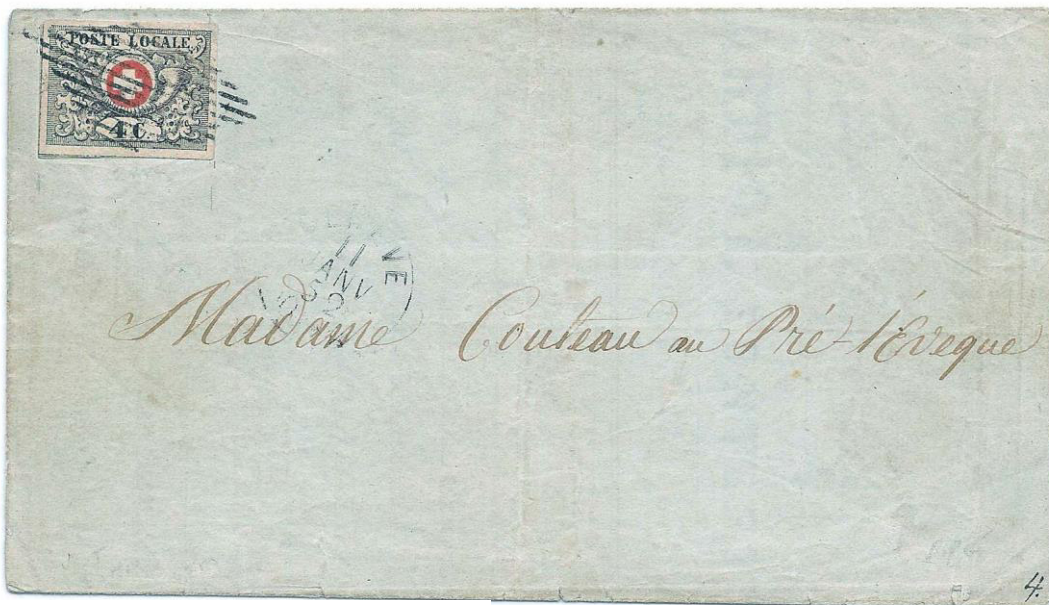 POSTE LOCALE
4 C.
11
JANV
Madame Couteau au Pré-l'Évêque
4.